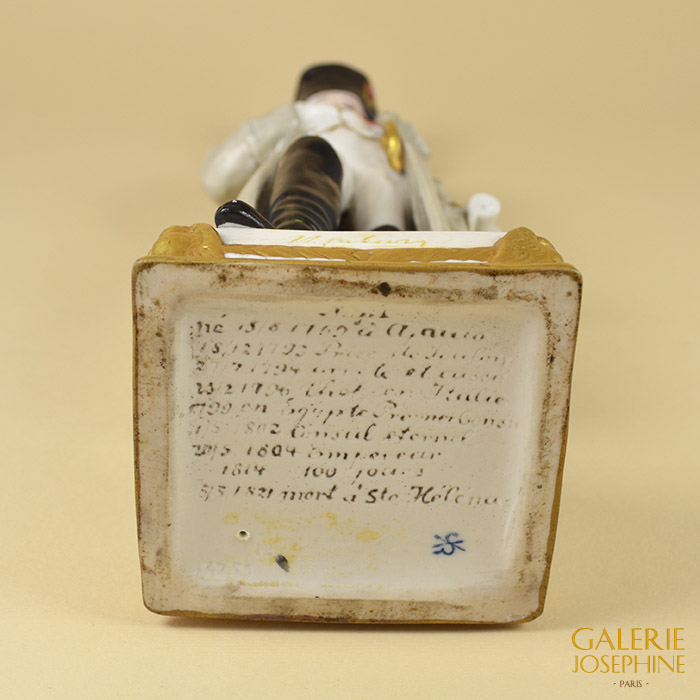 né 15/8 1769 à Ajaccio
18/12 1793 Prise de Toulon
1794 et
23/2 1796 Chef en Italie
1799 en Egypte Premier Consul
1802 Consul eternel
20/5 1804 Empereur
1814 100 jours
5/5 1821 mort à Ste Hélène
GALERIE
JOSEPHINE
- PARIS -